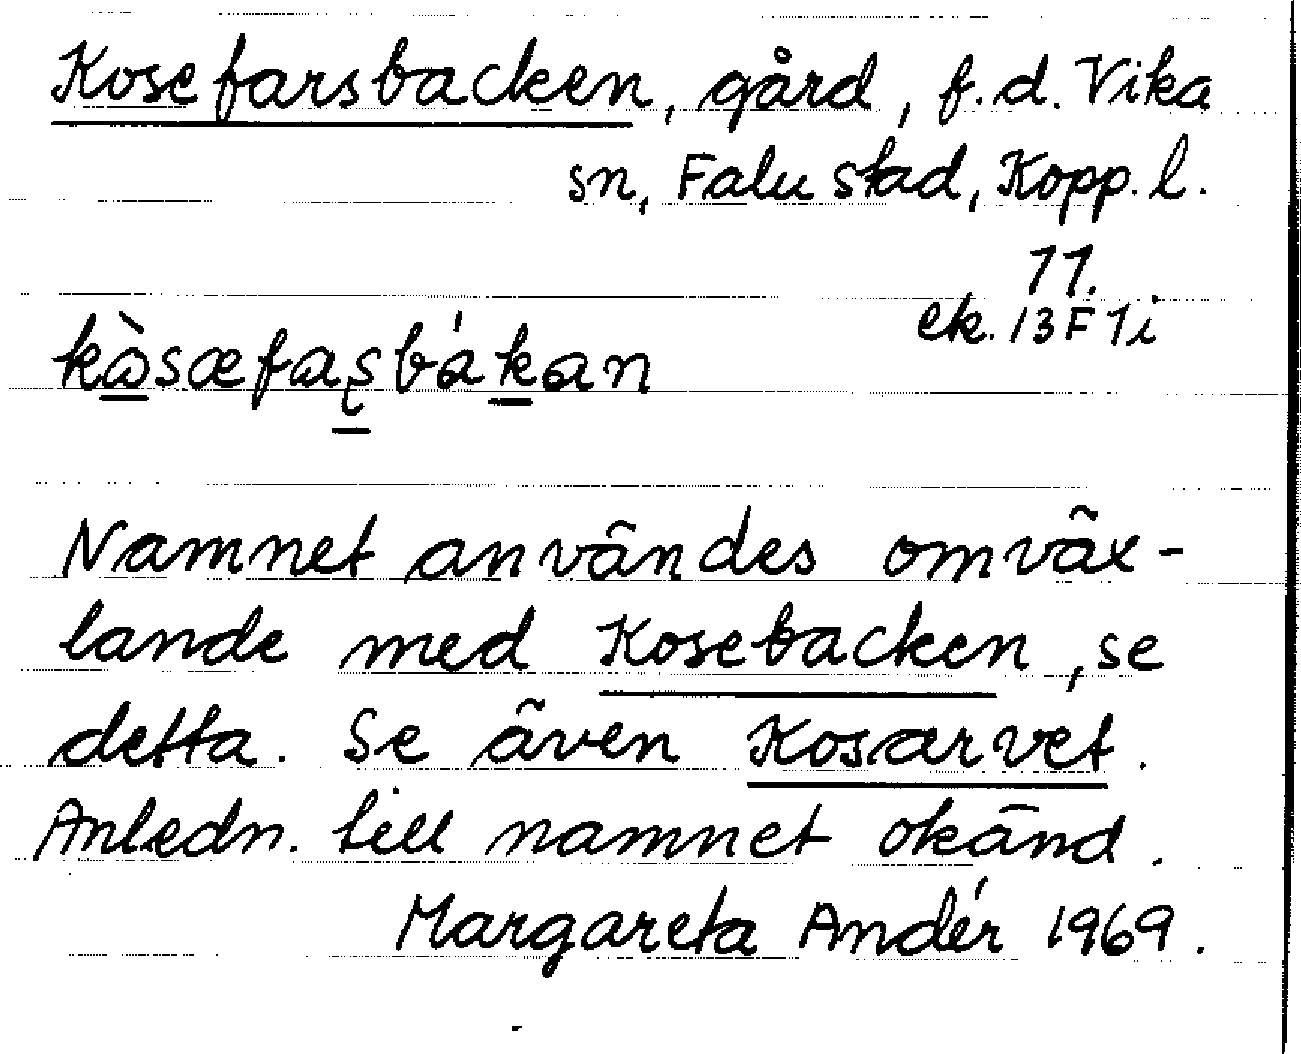 Kosefarsbacken, gård, f.d. Vika
sn, Falu stad, Kopp. l.
11.
ek. 13 F 1i
kòsæfaʂbákan
Namnet användes omväx-
lande med Kosebacken, se
detta. Se även Kosarvet.
Anledn. till namnet okänd.
Margareta Andér 1969.